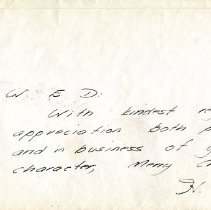 W. E. D:
With kindest re
appreciation both p
and in business of y
character, Merry C
H.